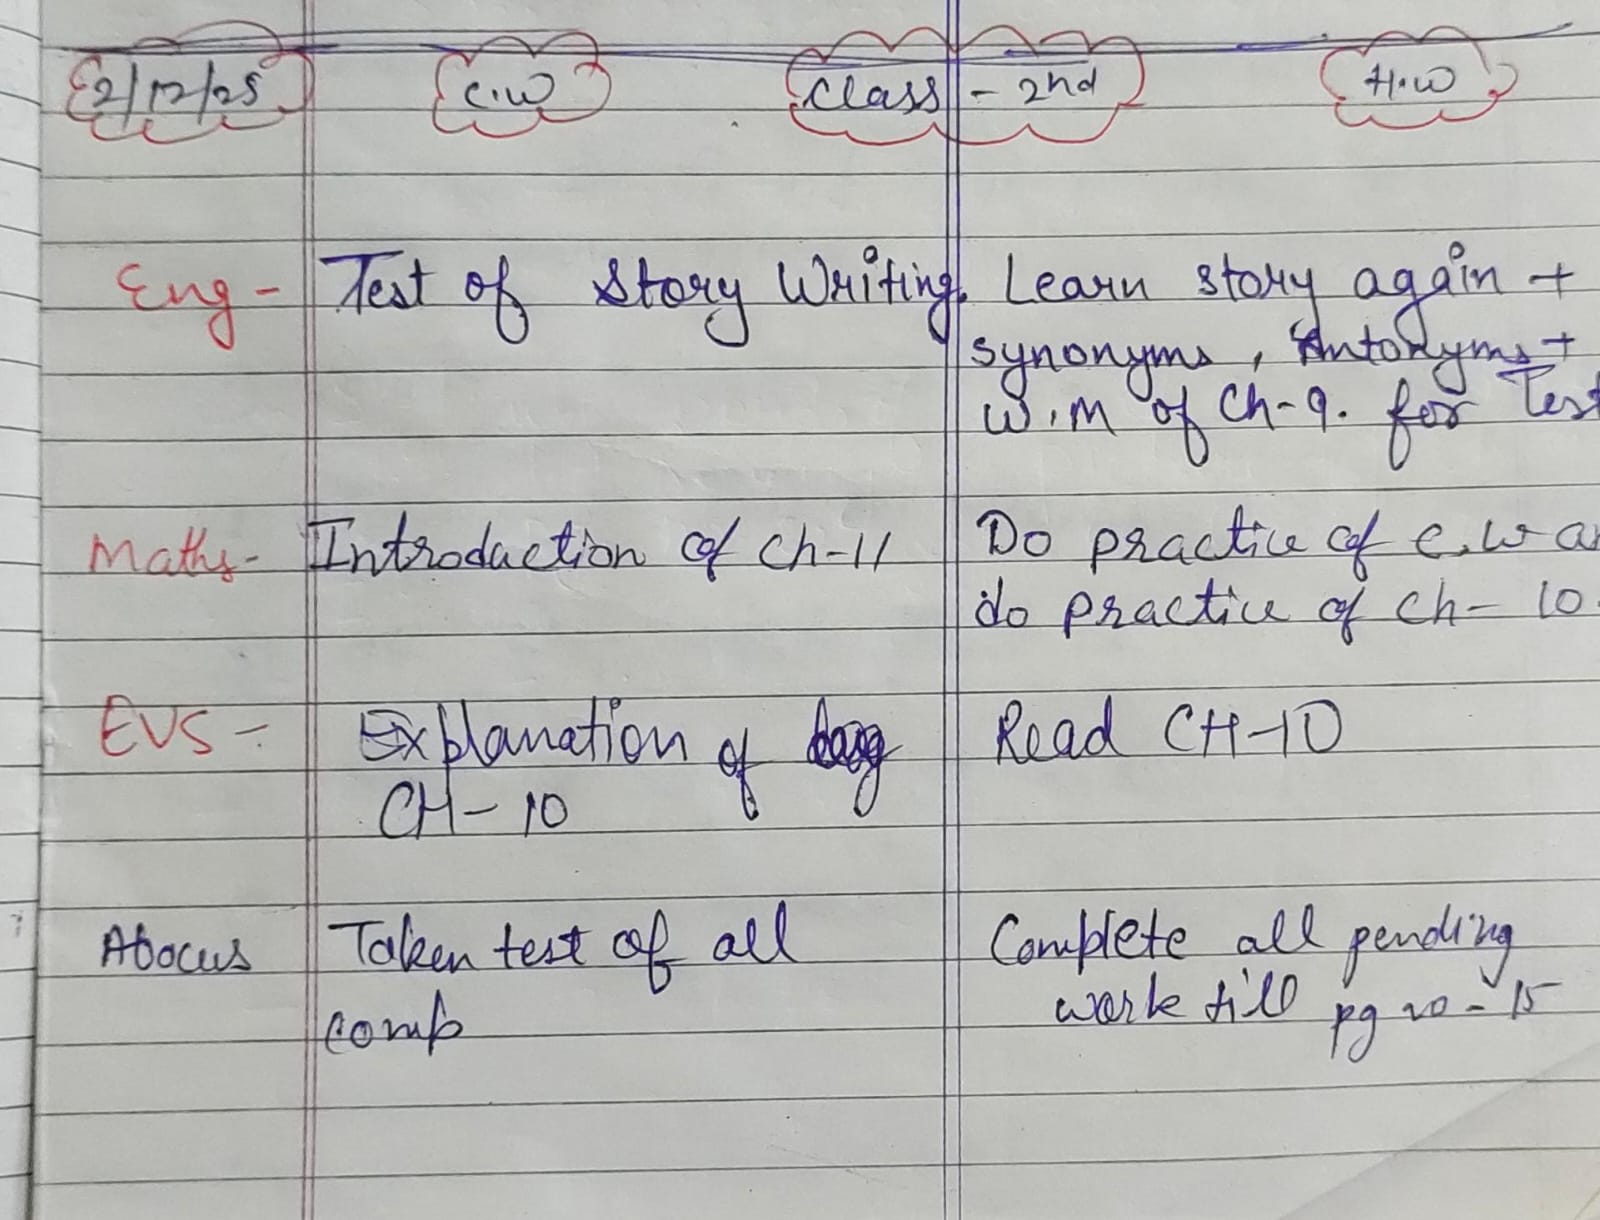 2/12/25 C.W Class - 2nd H.W
Eng - Test of Story Writing. Learn story again +
synonyms, Antonyms +
W.M of Ch-9. for Test
Maths - Introduction of Ch-11 Do practice of C.W
do practice of Ch- 10.
EVS - Explanation of Read CH-10
CH- 10
Abacus Taken test of all Complete all pending
comp work till pg no - 15